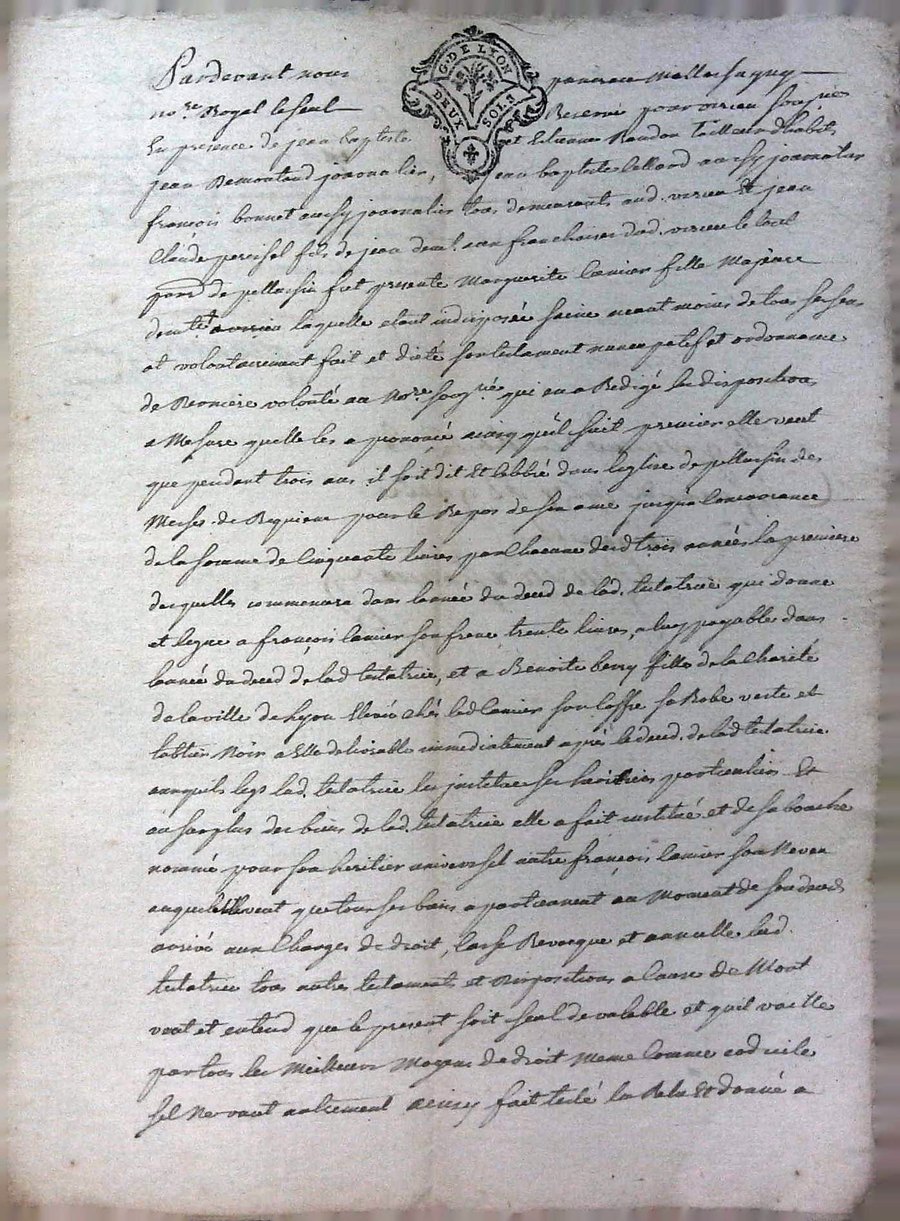 G. DE LYON
DEUX SOLS
Pardevant nous
no.re Royal le seul Reservé pour virieu sousg.né
En presence de jean baptiste et Etienne tailleur dhabits
jean journalier, jean baptiste aussy journalier
françois bonnet aussy journalier tous demeurants aud. virieu Et jean
Claude fils de jean dem.t aud. virieu le tout
par.sse de pellussin fut presente Marguerite fille Majeure
dem.te a virieu laquelle etant indisposée saine neant moins de tous ses sens
at volontairement fait et dicté son testament nuncupatif et ordonnance
de Derniere volonté au No.re sousg.né qui en a Redigé les dispositions
a Mesure quelle les a prononcé ainsy quil suit premier elle veut
que pendant trois ans il soit dit Et Celebré dans leglise de pellussin des
Messes de Requiem pour le Repos de son ame jusqua Concurrance
de la somme de Cinquante livres par Chacune desd. trois années la premiere
desquelles commencera dans lannée du deced de lad. testatrice qui donne
et legue a françois son frere trente livres, a luy payable dans
lannée du deced de lad testatrice, et a Benoite fille de la Charité
de la ville de Lyon Elevée chés led son Coffre sa Robe verte et
tablier Noir a Elle delivrable immediatement après le deced. de lad testatrice
auxquels legs lad. testatrice les institue ses heritiers particuliers Et
au surplus des biens de lad. testatrice elle a fait institué et de sa bouche
nommé pour son heritier universel autre françois son Neveu
auquel Elle veut que tous ses biens apartiennent au Moment de son deced
arrivé aux Charges de droit, Casse Revoque et annulle lad.
testatrice tous autres testaments et Dispositions a Cause de Mort
veut et entend que le present soit seul de valable et quil vaille
par tous les Meilleurs Moyens de droit Meme Comme codicile
sil Ne vaut autrement ainsy fait testé lu Relu Et donné a